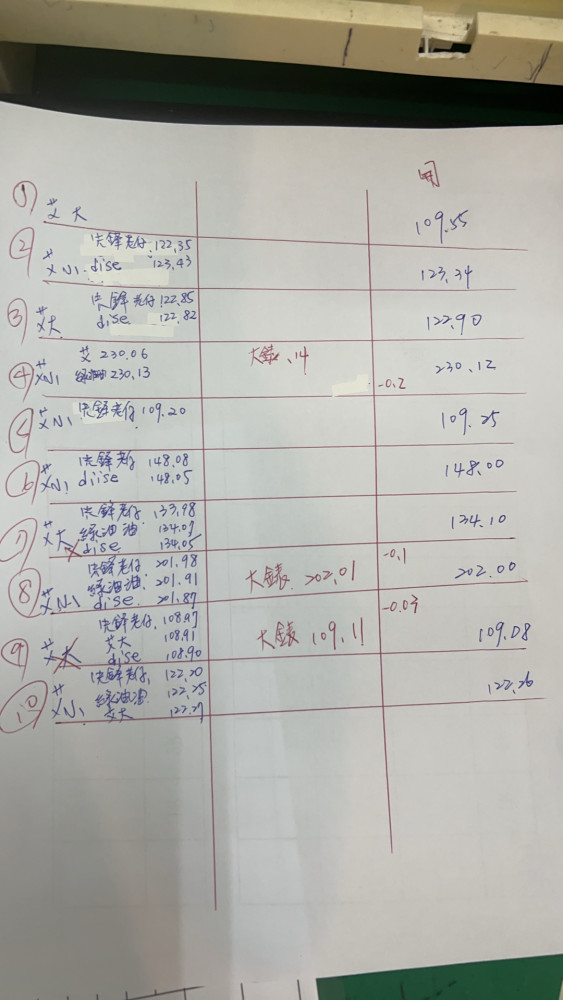 用
① 艾大 109.55
② 快鋒老仔 122.35
艾N1 dise 123.43 123.34
③ 快鋒老仔 122.85
艾大 dise 122.82 122.90
艾 230.06 大錶 .14
④ 艾N1 綠油油 230.13 -0.2 230.12
艾N1 快鋒老仔 109.20 109.25
快鋒老仔 148.08 148.00
⑥ 艾N1 diise 148.05
快鋒老仔 133.98 134.10
⑦ 艾大 綠油油 134.07
dise 134.05 -0.1
⑧ 快鋒老仔 201.98
綠油油 201.91 大錶 202.01 202.00
艾N1 dise 201.87 -0.03
快鋒老仔 108.97
⑨ 艾大 艾大 108.91 大錶 109.11 109.08
dise 108.90
快鋒老仔 122.20
⑩ 艾N1 綠油油 122.25 122.26
艾大 122.27